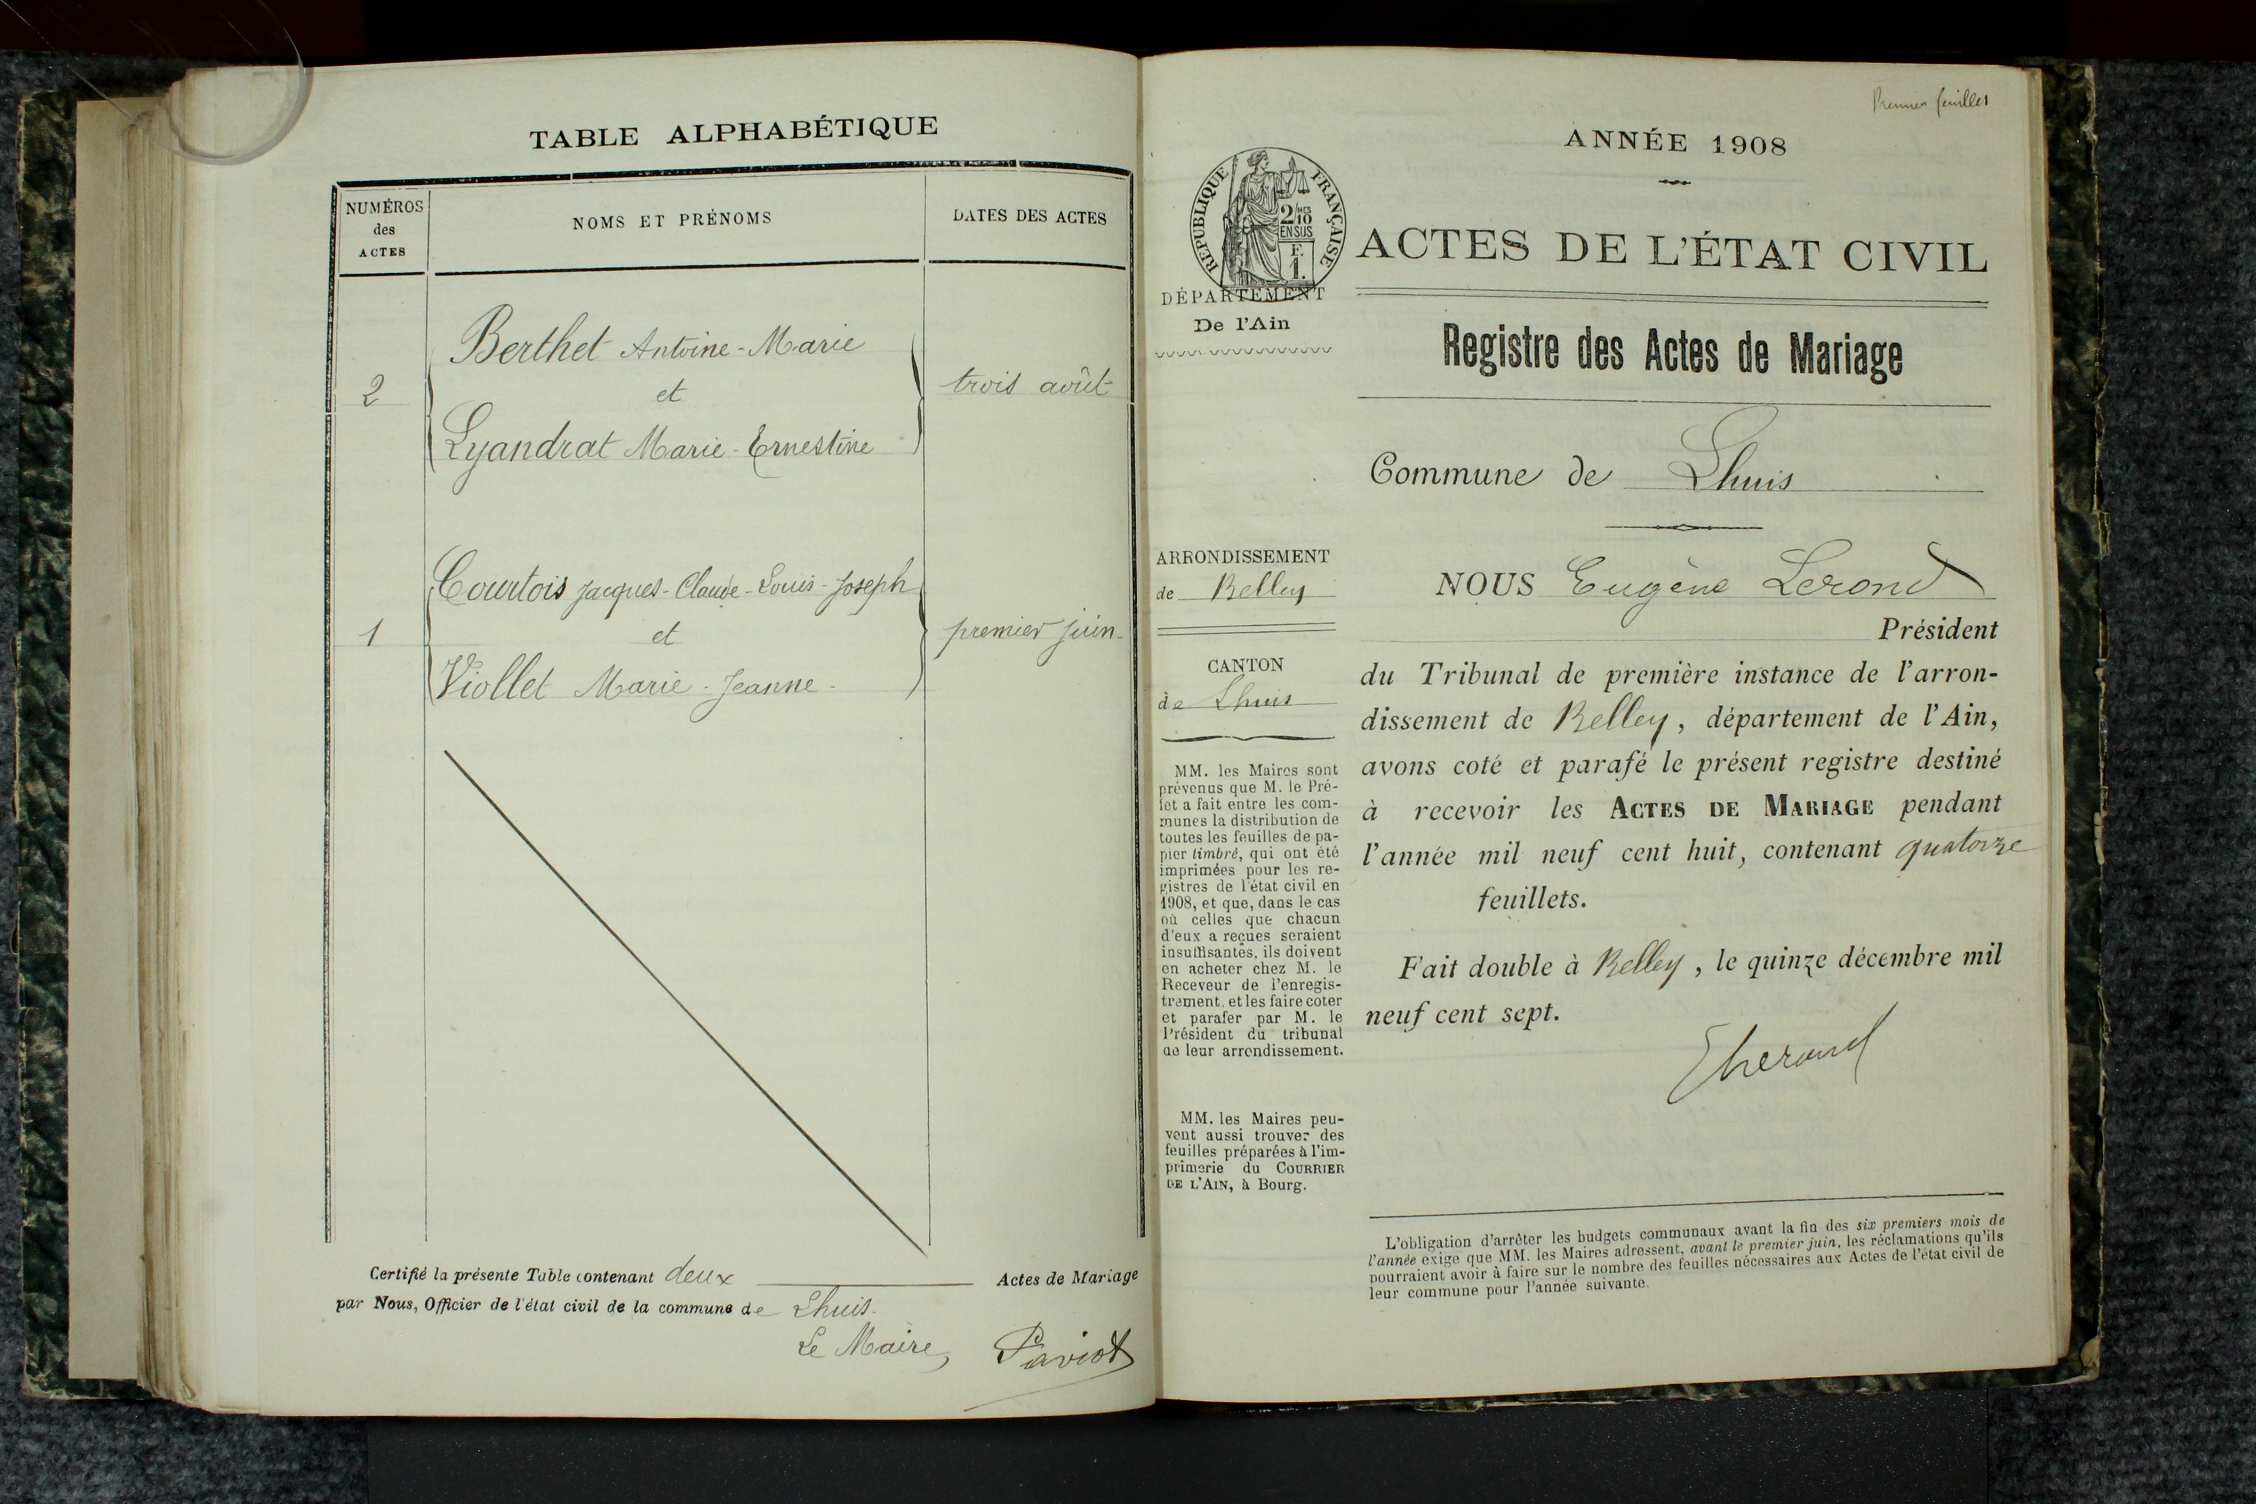 TABLE ALPHABÉTIQUE
NUMÉROS
des
ACTES
NOMS ET PRÉNOMS
DATES DES ACTES
Berthet Antoine-Marie
2
et
trois août
Lyandrat Marie-Ernestine
Courtois Jacques-Claude-Louis-Joseph
1
et
premier juin
Viollet Marie-Jeanne
Certifié la présente Table contenant deux Actes de Mariage
par Nous, Officier de l'état civil de la commune de Lhuis.
Le Maire,
Paviot
Premier feuillet
ANNÉE 1908
RÉPUBLIQUE FRANÇAISE
2/10 MES
EN SUS
F.
1.
ACTES DE L'ÉTAT CIVIL
DÉPARTEMENT
De l'Ain
Registre des Actes de Mariage
Commune de Lhuis
ARRONDISSEMENT
de Belley
CANTON
de Lhuis
MM. les Maires sont
prévenus que M. le Pré-
fet a fait entre les com-
munes la distribution de
toutes les feuilles de pa-
pier timbré, qui ont été
imprimées pour les re-
gistres de l'état civil en
1908, et que, dans le cas
où celles que chacun
d'eux a reçues seraient
insuffisantes, ils doivent
en acheter chez M. le
Receveur de l'enregis-
trement, et les faire coter
et parafer par M. le
Président du tribunal
de leur arrondissement.
MM. les Maires peu-
vent aussi trouver des
feuilles préparées à l'im-
primerie du COURRIER
DE L'AIN, à Bourg.
NOUS Eugène Lerond
Président
du Tribunal de première instance de l'arron-
dissement de Belley, département de l'Ain,
avons coté et parafé le présent registre destiné
à recevoir les ACTES DE MARIAGE pendant
l'année mil neuf cent huit, contenant quatorze
feuillets.
Fait double à Belley, le quinze décembre mil
neuf cent sept.
ELerond
L'obligation d'arrêter les budgets communaux avant la fin des six premiers mois de
l'année exige que MM. les Maires adressent, avant le premier juin, les réclamations qu'ils
pourraient avoir à faire sur le nombre des feuilles nécessaires aux Actes de l'état civil de
leur commune pour l'année suivante.